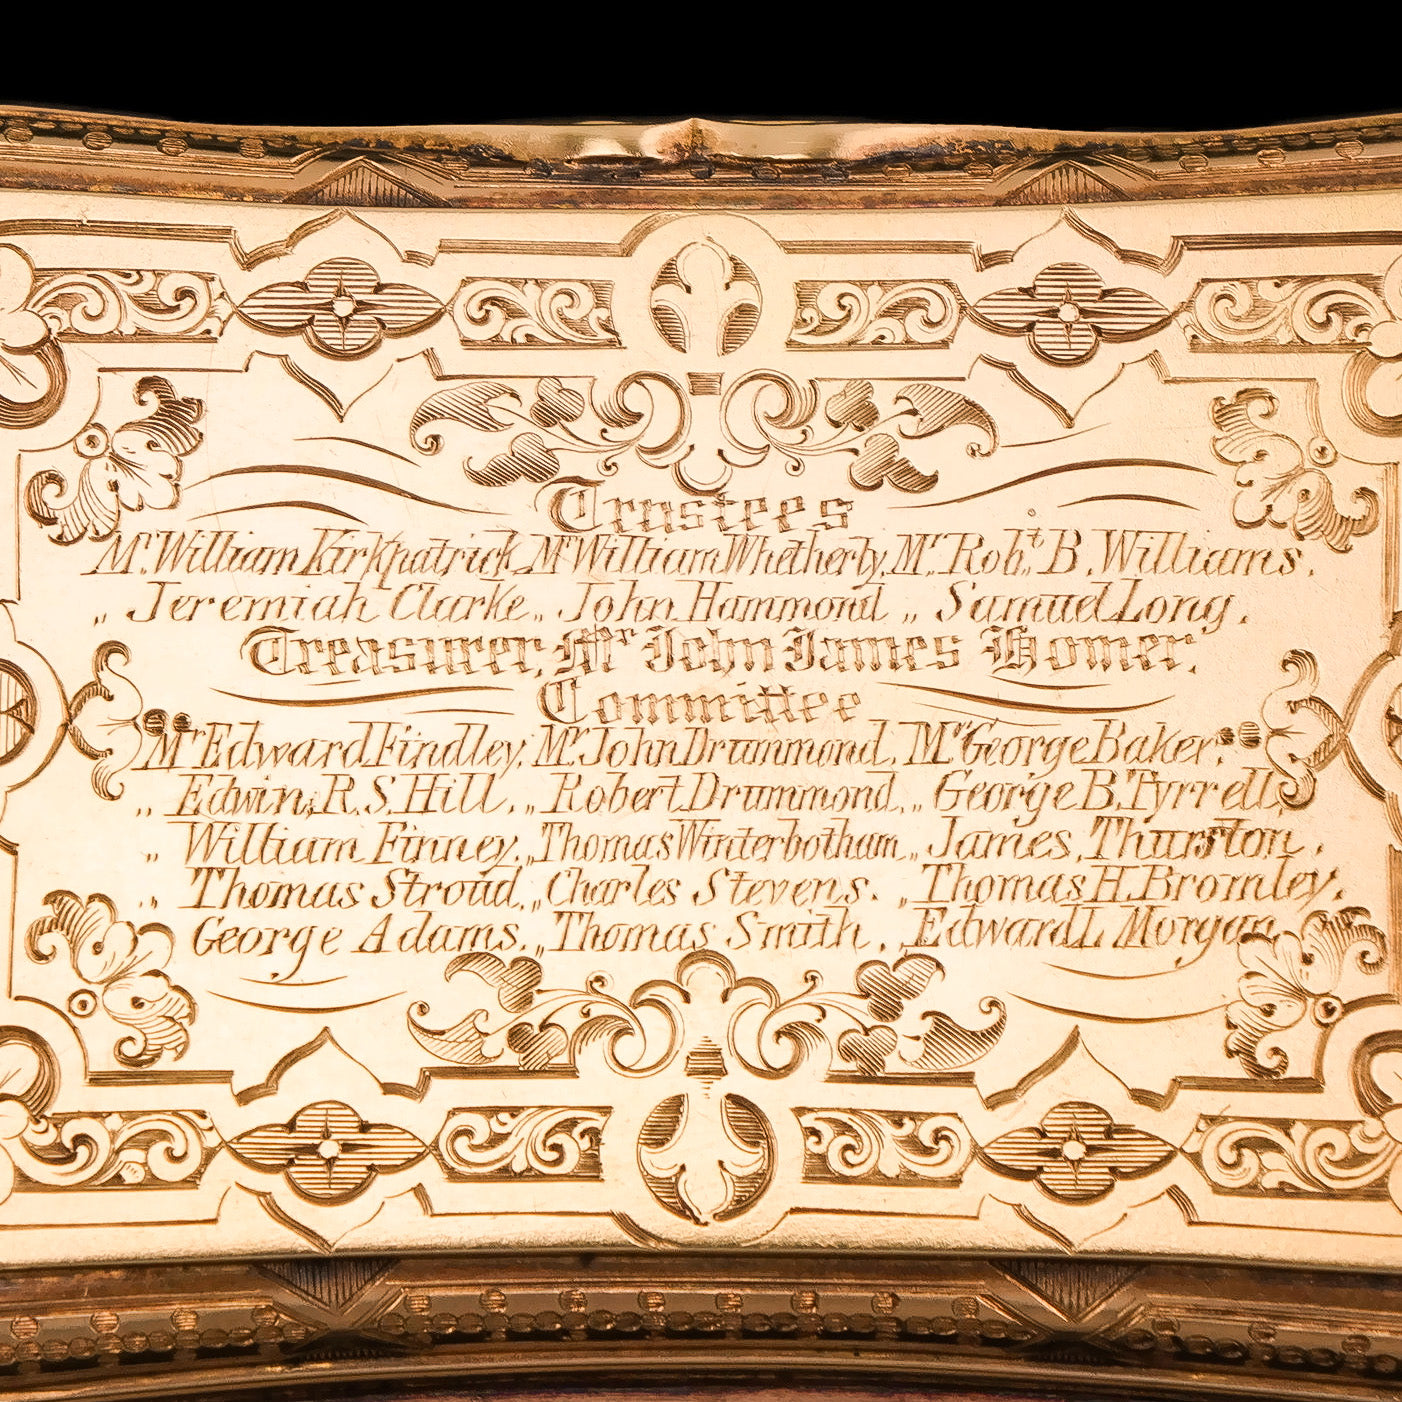 Trustees
Mr. William Kirkpatrick, Mr William Whetherly, Mr. Robt. B. Williams.
„ Jeremiah Clarke „ John Hammond „ Samuel Long.
Treasurer, Mr John James Homer.
Committee
Mr Edward Findley, Mr John Drummond, Mr George Baker,
„ Edwin, R. S. Hill, „ Robert Drummond, „ George B. Tyrrell,
„ William Finney, „ Thomas Winterbotham, „ James, Thurston,
„ Thomas Stroud, „ Charles Stevens. „ Thomas H. Bromley,
George Adams, „ Thomas Smith, Edward L Morgan,